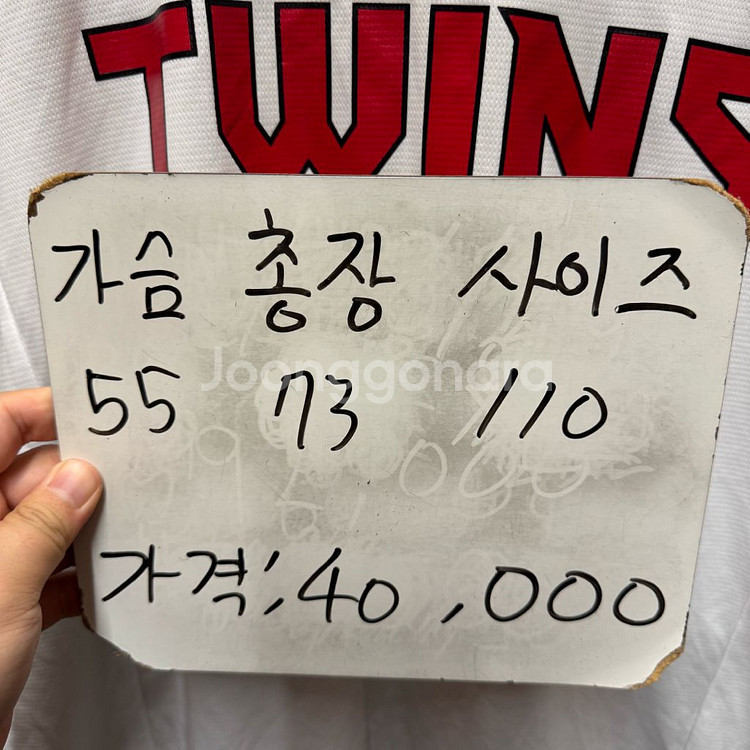 TWINS
가슴 총장 사이즈
55 73 110
Joonggonara
가격; 40,000